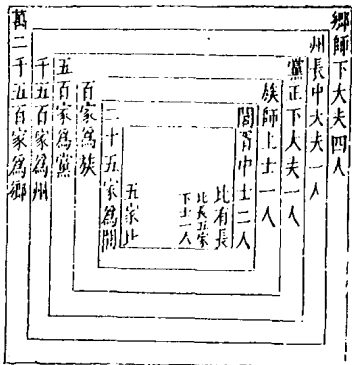 鄉師下大夫四人
州長中大夫一人
黨正下大夫一人
族師上士一人
閭胥中士二人
比有長
比長五家
下士一人
五家比
二十五家為閭
百家為族
五百家為黨
千五百家為州
萬二千五百家為鄉